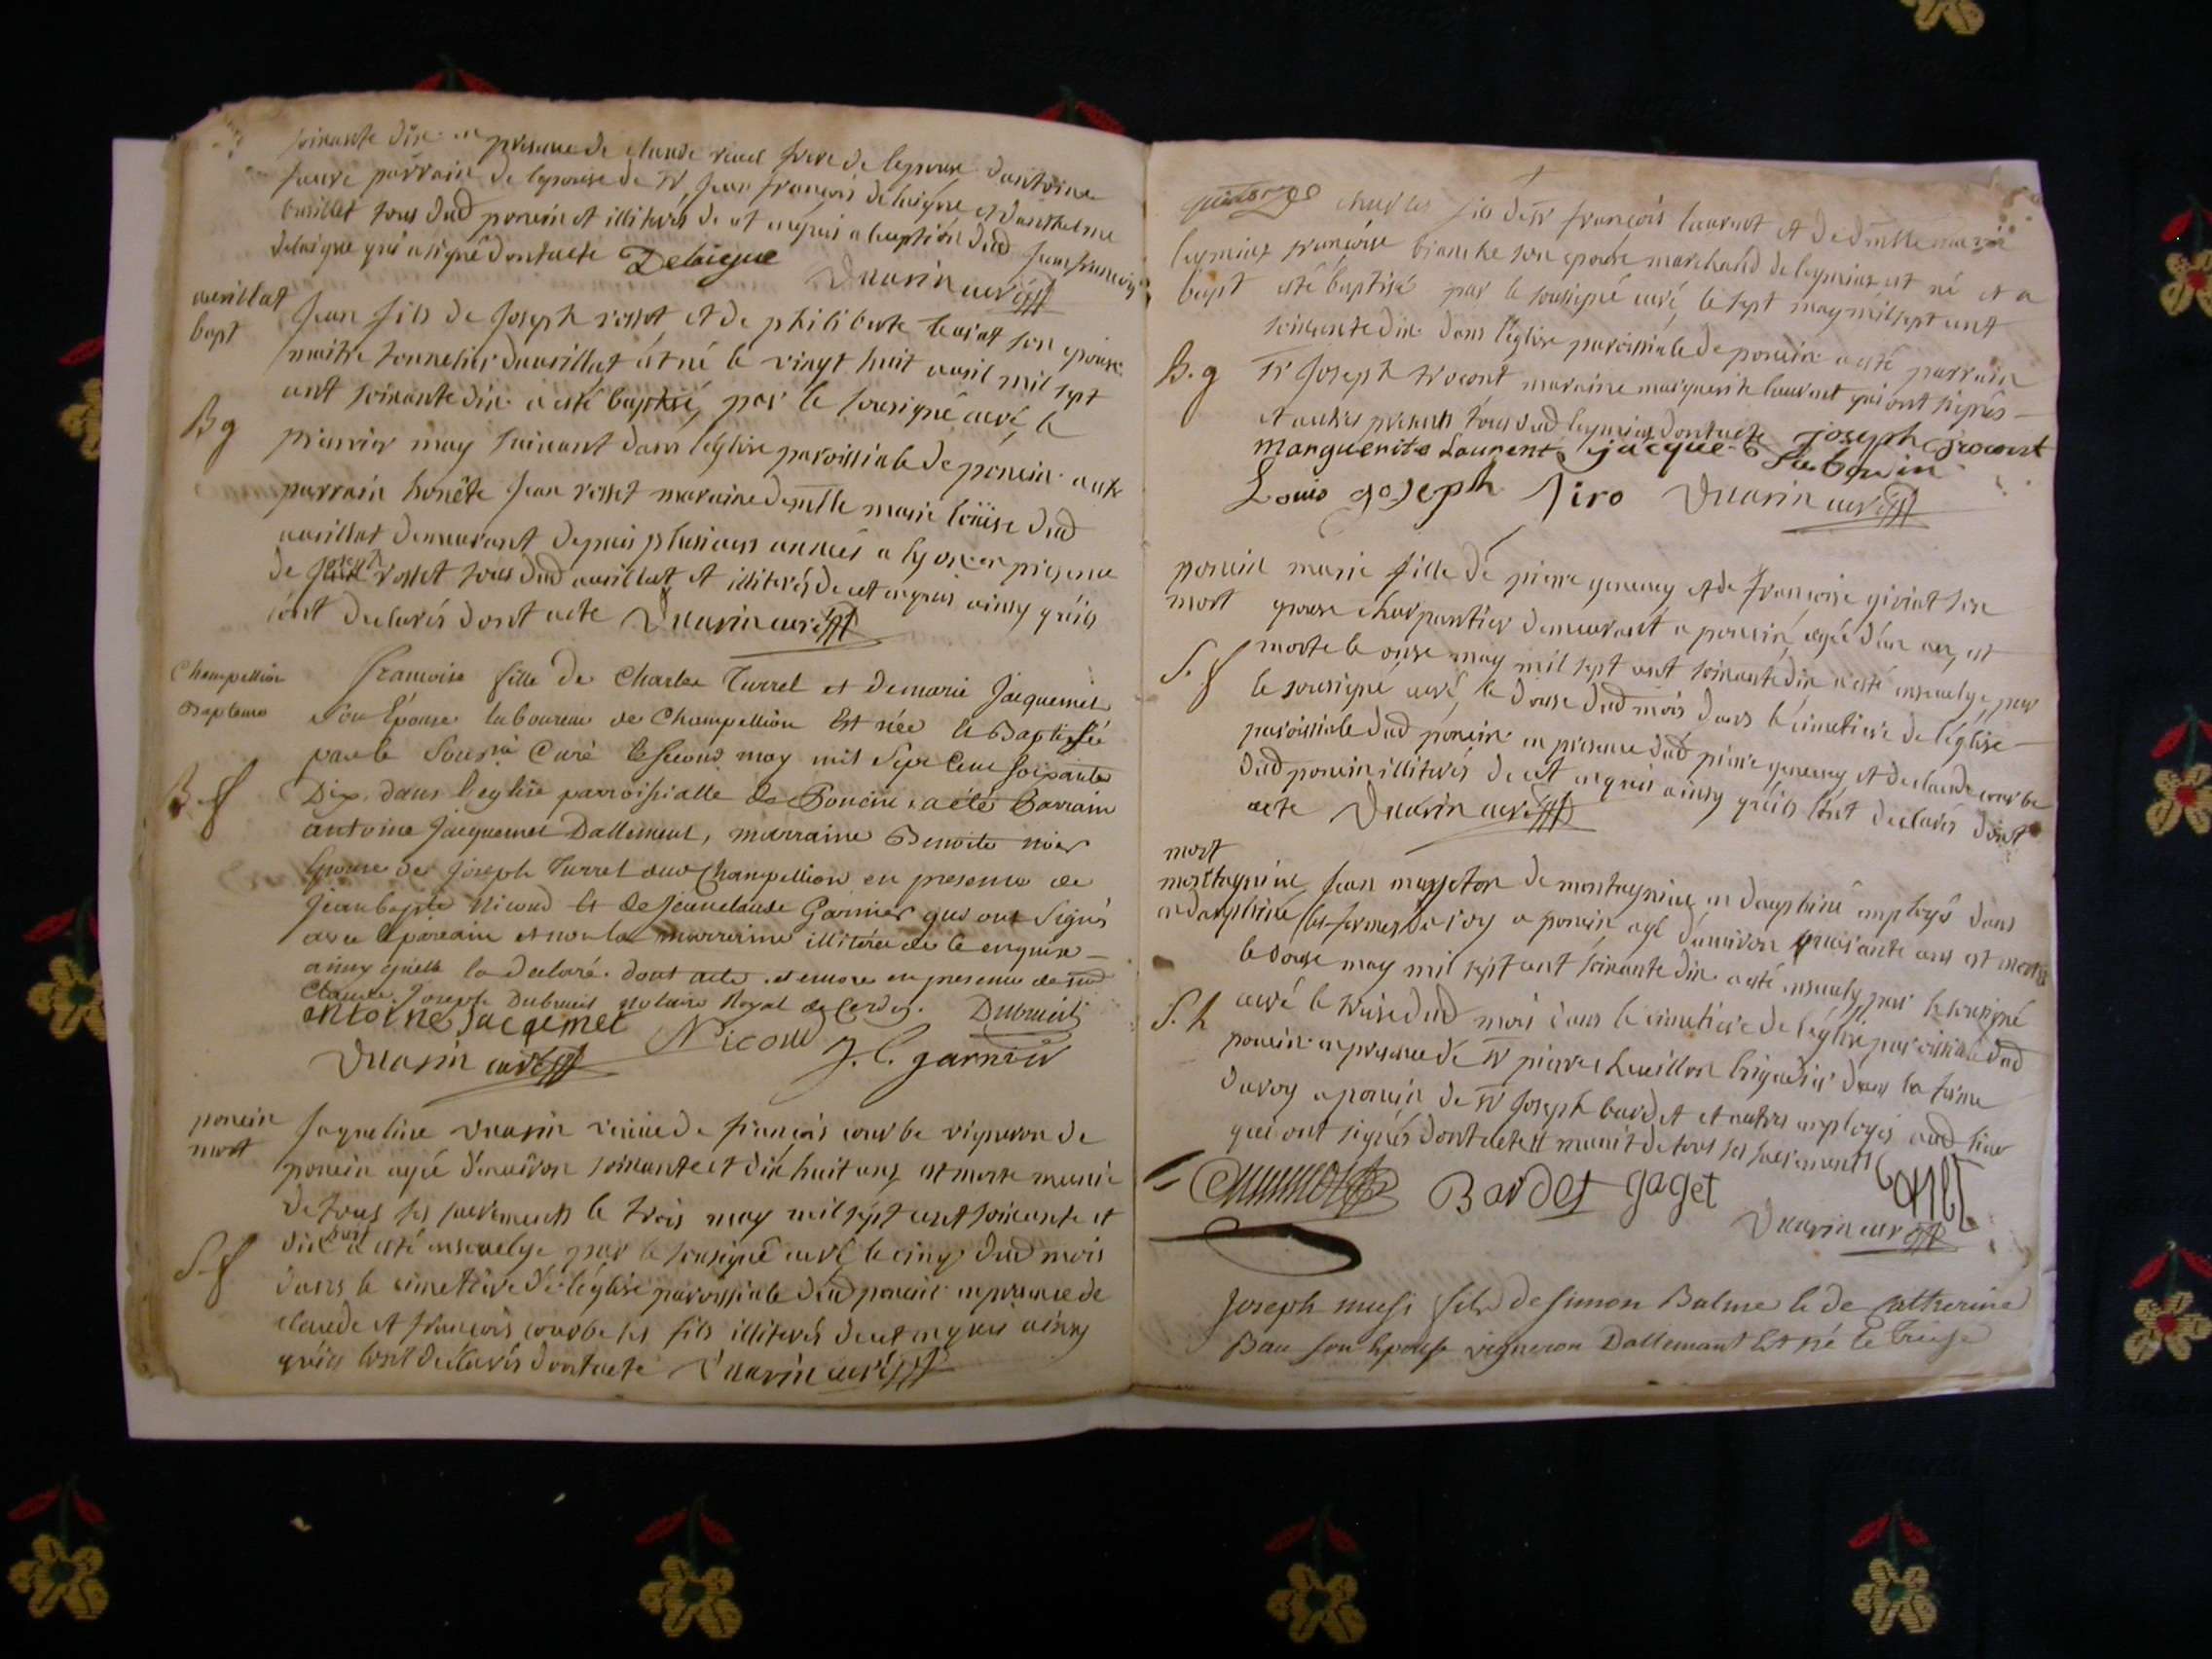 soixante dix en presence de claude frere de lepouse dantoine
parrain de lepouse de Sr Jean françois delaigue et danthelme
tous dud poncin et illiterés de ce enquis a lexception dud Jean françois
delaigue qui a signé dont acte Delaigue
Duarin curé
avrillat Jean fils de Joseph rosset et de philiberte son epouse
bapt maitre tonnelier davrillat est né le vingt huit avril mil sept
cent soixante dix a esté baptisé par le sousigné curé le
B g premier may suivant dans léglise paroissiale de poncin a esté
parrain honête Jean rosset maraine demlle marie loüise dud
avrillat demeurant depuis plusieurs années a lyon en presence
de Joseph rosset tous dud avrillat et illiterés de cet enquis ainsy quils
lont declarés dont acte Duarin curé
Champellion francoise fille de Charles Turrel et demarie Jacquemet
Bapteme Son Epouse laboureur de Champellion Est née & Baptisée
par le Sousné Curé le second may mil Sept Cent soixante
B. f Dix dans l'eglise parroissialle de Poncin a été Parrain
antoine Jacquemet Dallement, marraine Benoite nier
Epouse de Joseph Turrel dud Champellion en presence de
Jean bapte Nicoud et de Jeanclaude Garnier qui ont Signés
avec le parrain et non la marraine illiterée de ce enquise
ainsy quelle la declaré. dont acte. et encore en presence de
Claude Joseph Dubreuil notaire Royal de Cerdon. Dubreuil
antoine Jacqemet Nicoud J. C. garnier
Duarin curé
poncin Jaqueline Duarin veuve de françois courbe vigneron de
mort poncin agée denviron soixante et dix huit ans est morte munie
de tous ses sacrements le trois may mil sept cent soixante et
dix a esté ensevelye par le sousigné curé le cinq dud mois
S. f dans le cimetiere de léglise paroissiale dud poncin en presence de
claude et françois courbe ses fils illiterés de cet enquis ainsy
quils lont declarés dont acte Duarin curé
charles fils de Sr françois laurent et de demlle marie
leymiat françoise blanche son epouse marchand de leymiat est né et a
bapt esté baptisé par le sousigné curé le sept may mil sept cent
soixante dix dans l'église paroissiale de poncin a esté parrain
B. g Sr Joseph trocont maraine marguerite laurent qui ont signés
et autres presents tous dud leymiat dont acte Joseph
Marguerite Laurent jacque
Louis Joseph Siro Duarin curé
poncin marie fille de pierre genevey et de françoise giriat son
mort epouse charpantier demeurant a poncin agée dun an, est
morte le onze may mil sept cent soixante dix a esté ensevelye par
S. f le sousigné curé le douze dud mois dans le cimetiere de l'église
paroissiale dud poncin en presence dud pierre genevey et de claude courbe
dud poncin illiterés de cet enquis ainsy quils lont declarés dont
acte Duarin curé
mort
montagnieu Jean masseton de montagnieu en dauphiné employé dans
en dauphiné les fermes du roy a poncin agé denviron quarante ans est mort
le douze may mil sept cent soixante dix a esté ensevely par le sousigné
S. h curé le treize dud mois dans le cimetiere de l'église paroissiale dud
poncin en presence de Sr pierre chevillon brigadier dans la ferme
du roy a poncin de Sr Joseph bardet et autres employés aud lieu
qui ont signés dont acte et munit de tous ses sacrements
Bardet gaget
Duarin curé
Joseph fils de simon Balme & de Catherine
Bau son Epouse vigneron Dallemant Est né le treise